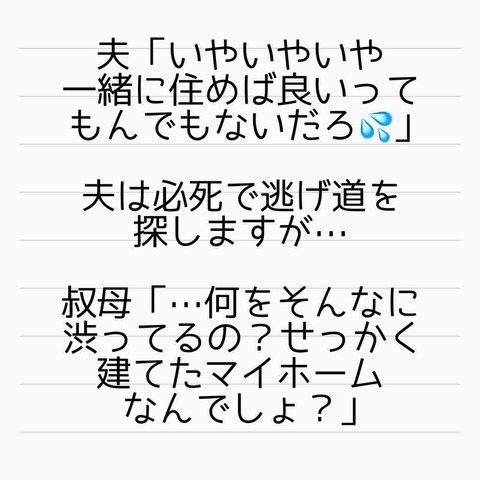 夫「いやいやいや
一緒に住めば良いって
もんでもないだろ💦」
夫は必死で逃げ道を
探しますが…
叔母「…何をそんなに
渋ってるの？せっかく
建てたマイホーム
なんでしょ？」